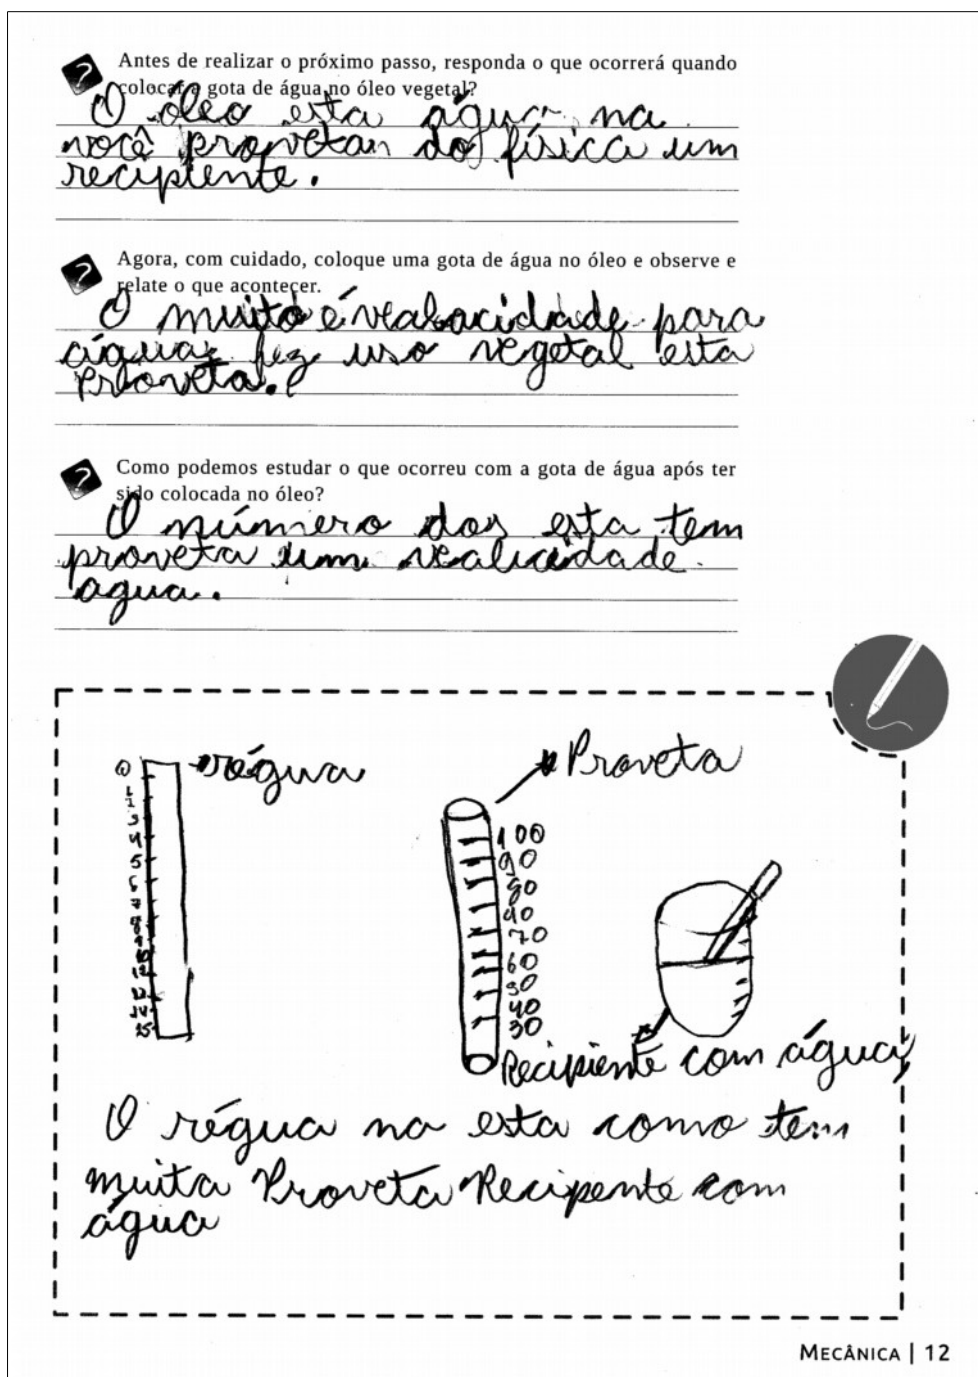 Antes de realizar o próximo passo, responda o que ocorrerá quando
colocar a gota de água no óleo vegetal?
O óleo esta água na
você provetan do física um
recipiente.
Agora, com cuidado, coloque uma gota de água no óleo e observe e
relate o que acontecer.
O muito é vealocidade para
água fez uso vegetal esta
proveta.
Como podemos estudar o que ocorreu com a gota de água após ter
sido colocada no óleo?
O número dos esta tem
proveta um
água.
régua
Proveta
0
1
2
3
4
5
6
7
8
9
10
12
13
14
15
100
90
80
40
70
60
50
40
30
Recipiente com água
O régua na esta como tem
muita Proveta Recipente com
água
MECÂNICA | 12